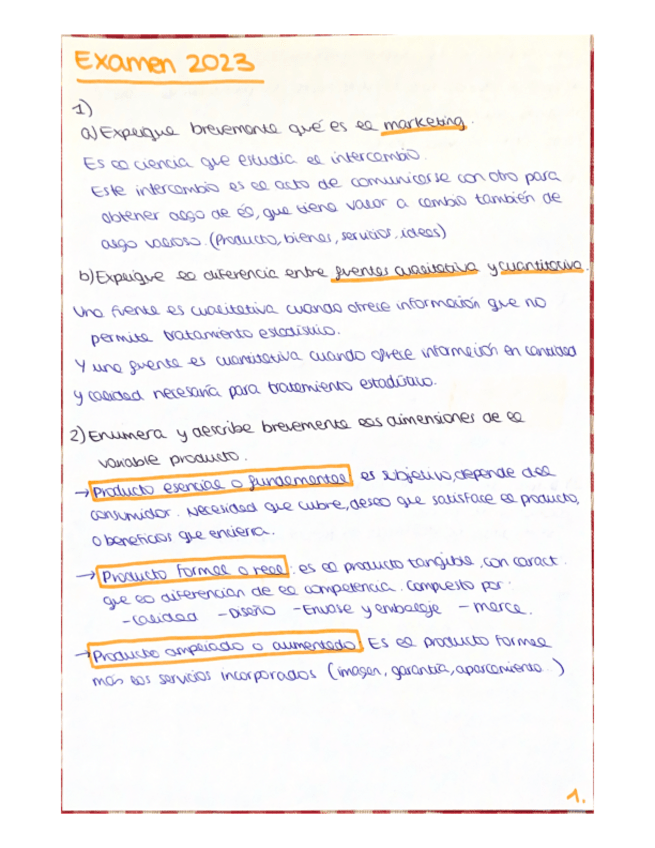 Examen 2023
1)
a) Explique brevemente qué es el marketing.
Es la ciencia que estudia el intercambio.
Este intercambio es el acto de comunicarse con otro para
obtener algo de él, que tiene valor a cambio también de
algo valioso. (Producto, bienes, servicios, ideas)
b) Explique la diferencia entre fuentes cualitativa y cuantitativa.
Una fuente es cualitativa cuando ofrece información que no
permite tratamiento estadístico.
Y una fuente es cuantitativa cuando ofrece información en cantidad
y calidad necesaria para tratamiento estadístico.
2) Enumera y describe brevemente las dimensiones de la
variable producto.
→ Producto esencial o fundamental es subjetivo, depende del
consumidor. Necesidad que cubre, deseo que satisface el producto,
o beneficios que encierra.
→ Producto formal o real: es el producto tangible, con caract.
que lo diferencian de la competencia. Compuesto por:
- Calidad - Diseño - Envase y embalaje - marca.
→ Producto ampliado o aumentado: Es el producto formal
más los servicios incorporados (imagen, garantía, aparcamiento..)
1.